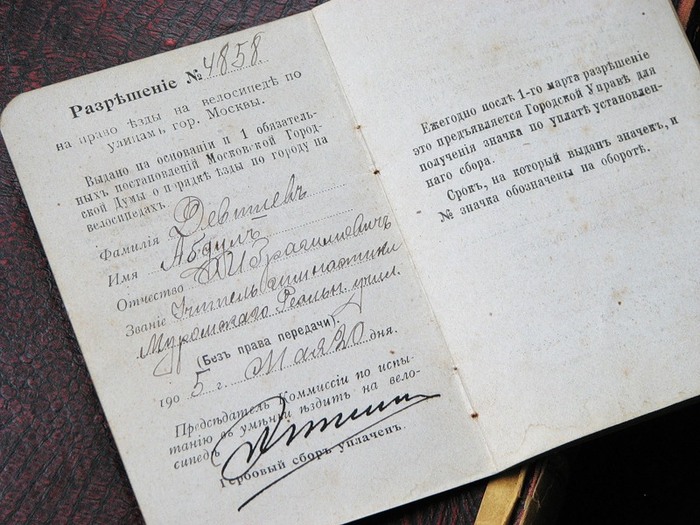 Разрѣшеніе № 4858.
на право ѣзды на велосипедѣ по
улицамъ гор. Москвы.
Выдано на основаніи п 1 обязатель-
ныхъ постановленій Московской Город-
ской Думы о порядкѣ ѣзды по городу на
велосипедахъ.
Фамилія Девтеевъ
Имя Абдулъ
Отчество Ибрагимовичъ
Званіе Учитель гимнастики
Реальн. учил.
(Безъ права передачи).
1905 г. Мая 20 дня.
Предсѣдатель Коммиссіи по испы-
танію въ умѣньи ѣздить на вело-
сипедѣ
Гербовый сборъ уплаченъ.
Ежегодно послѣ 1-го марта разрѣшеніе
это предъявляется Городской Управѣ для
полученія значка по уплатѣ установлен-
наго сбора.
Срокъ, на который выданъ значекъ, и
№ значка обозначены на оборотѣ.